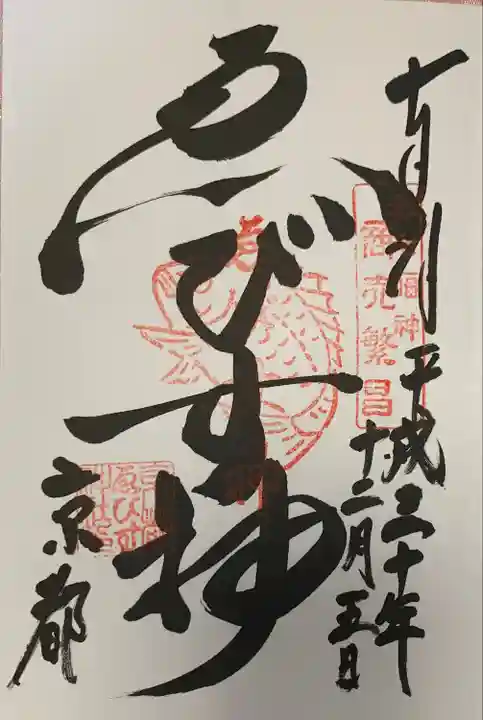 十日月
平成三十年
十二月五日
ゑびす神
京都
商売繁昌
福神